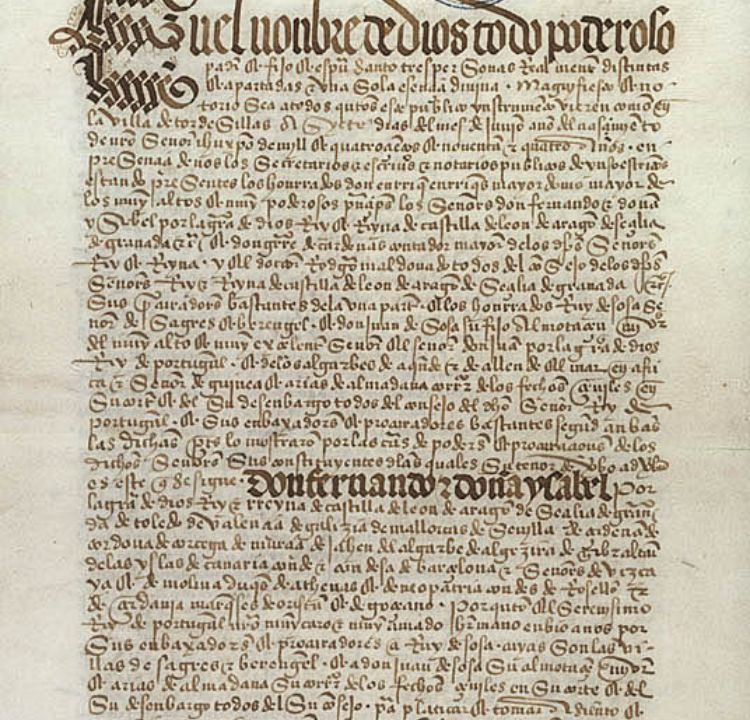 En el nonbre de dios todo poderoso
padre e fijo e espu santo tres personas Real mente distintas
e apartadas e vna Sola esençia diuina . Magnifiesto e no-
torio Sea a todos quantos este publico ynstrumento vieren como en
la villa de tordesillas a Syete dias del mes de Junio año del nasçimiento
de nro Señor ihu xpo de mill e quatroçientos e nouenta e quatro años . en
presençia de nos los Secretarios e escriuanos e notarios publicos de yuso escriptos
estando presentes los honrrados don enrrique enrriques mayordomo mayor de
los muy altos e muy poderosos prinçipes los Señores don fernando e doña
ysabel por la graçia de dios Rey e Reyna de castilla de leon de aragon de seçilia
de granada etc e don gutierre de cardenas contador mayor de los dichos Señores
Rey e Reyna . y el doctor Rodrigo maldonado todos del consejo de los dichos
Señores Rey e Reyna de castilla de leon de aragon de Seçilia de granada etc
Sus procuradores bastantes de la vna parte . e los honrrados Ruy de sosa Se
ñor de Sagres e berengel . e don juan de Sosa su fijo almotaçen mayor
del muy alto e muy exçelente Señor el señor don juan por la graçia de dios
Rey de portugal . e de los algarbes de aquende e de allende el mar en afri
ca e Señor de guinea e arias de almadana corregidor de los fechos çeuiles en
Su corte e del Su desenbargo todos del consejo del dicho Señor Rey de
portugal . e Sus enbaxadores e procuradores bastantes segund anbas
las dichas partes lo mostraron por las cartas de poderes e procuraçiones de los
dichos Señores Sus constituyentes de las quales Su tenor de verbo ad verbum
es este que se sigue . don fernando e doña ysabel por
la graçia de dios Rey e rreyna de castilla de leon de aragon de Seçilia de grana
da de toledo de valençia de galizia de mallorcas de Seuilla de çerdeña de
cordoua de corçega de murçia de jahen del algarbe de algezira de gibraltar
de las yslas de canaria conde e condesa de barçelona e Señores de vizca
ya e de molina duques de athenas e de neopatria condes de Rosellon e
de çerdania marqueses de oristan e de goçiano . Por quanto el Serenisimo
Rey de portugal nro muy caro e muy amado hermano enbio a nos por
Sus enbaxadores e procuradores a Ruy de sosa . cuyas Son las vi-
llas de sagres e berengel . e a don juan de sosa Su almotaçen mayor
e arias de almadana Su corregidor de los fechos çeuiles en Su corte e del
Su desenbargo todos del Su consejo . para platicar e tomar asiento e